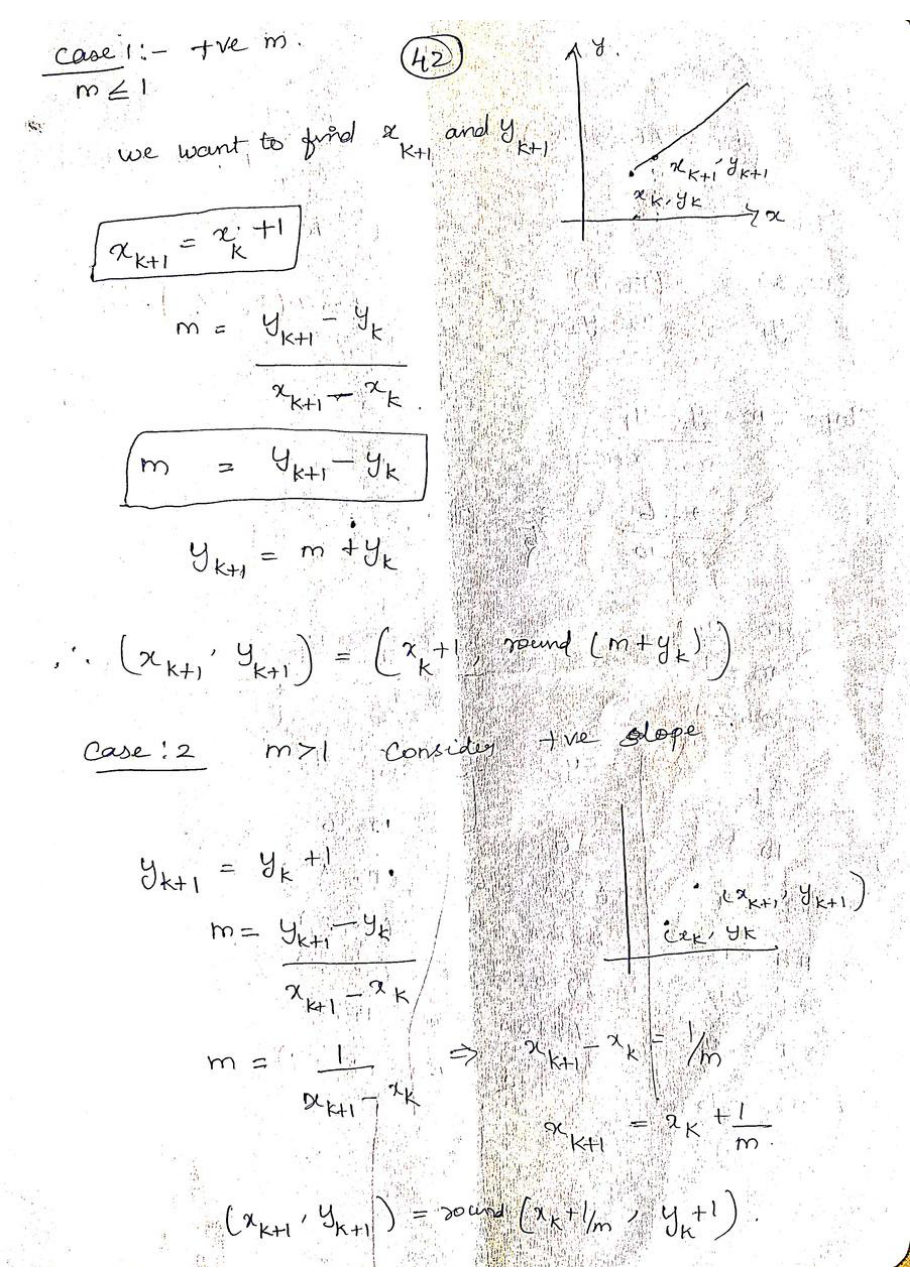 Case 1:- +ve m.
m ≤ 1
(42)
y.
we want to find x_{k+1} and y_{k+1}
x_{k+1}, y_{k+1}
x_k, y_k
x
x_{k+1} = x_k + 1
m = (y_{k+1} - y_k) / (x_{k+1} - x_k)
m = y_{k+1} - y_k
y_{k+1} = m + y_k
∴ (x_{k+1}, y_{k+1}) = (x_k + 1, round (m + y_k))
Case : 2 m > 1 Consider +ve slope
y_{k+1} = y_k + 1
(x_{k+1}, y_{k+1})
(x_k, y_k
m = (y_{k+1} - y_k) / (x_{k+1} - x_k)
m = 1 / (x_{k+1} - x_k) ⇒ x_{k+1} - x_k = 1/m
x_{k+1} = x_k + 1/m
(x_{k+1}, y_{k+1}) = round (x_k + 1/m, y_k + 1).